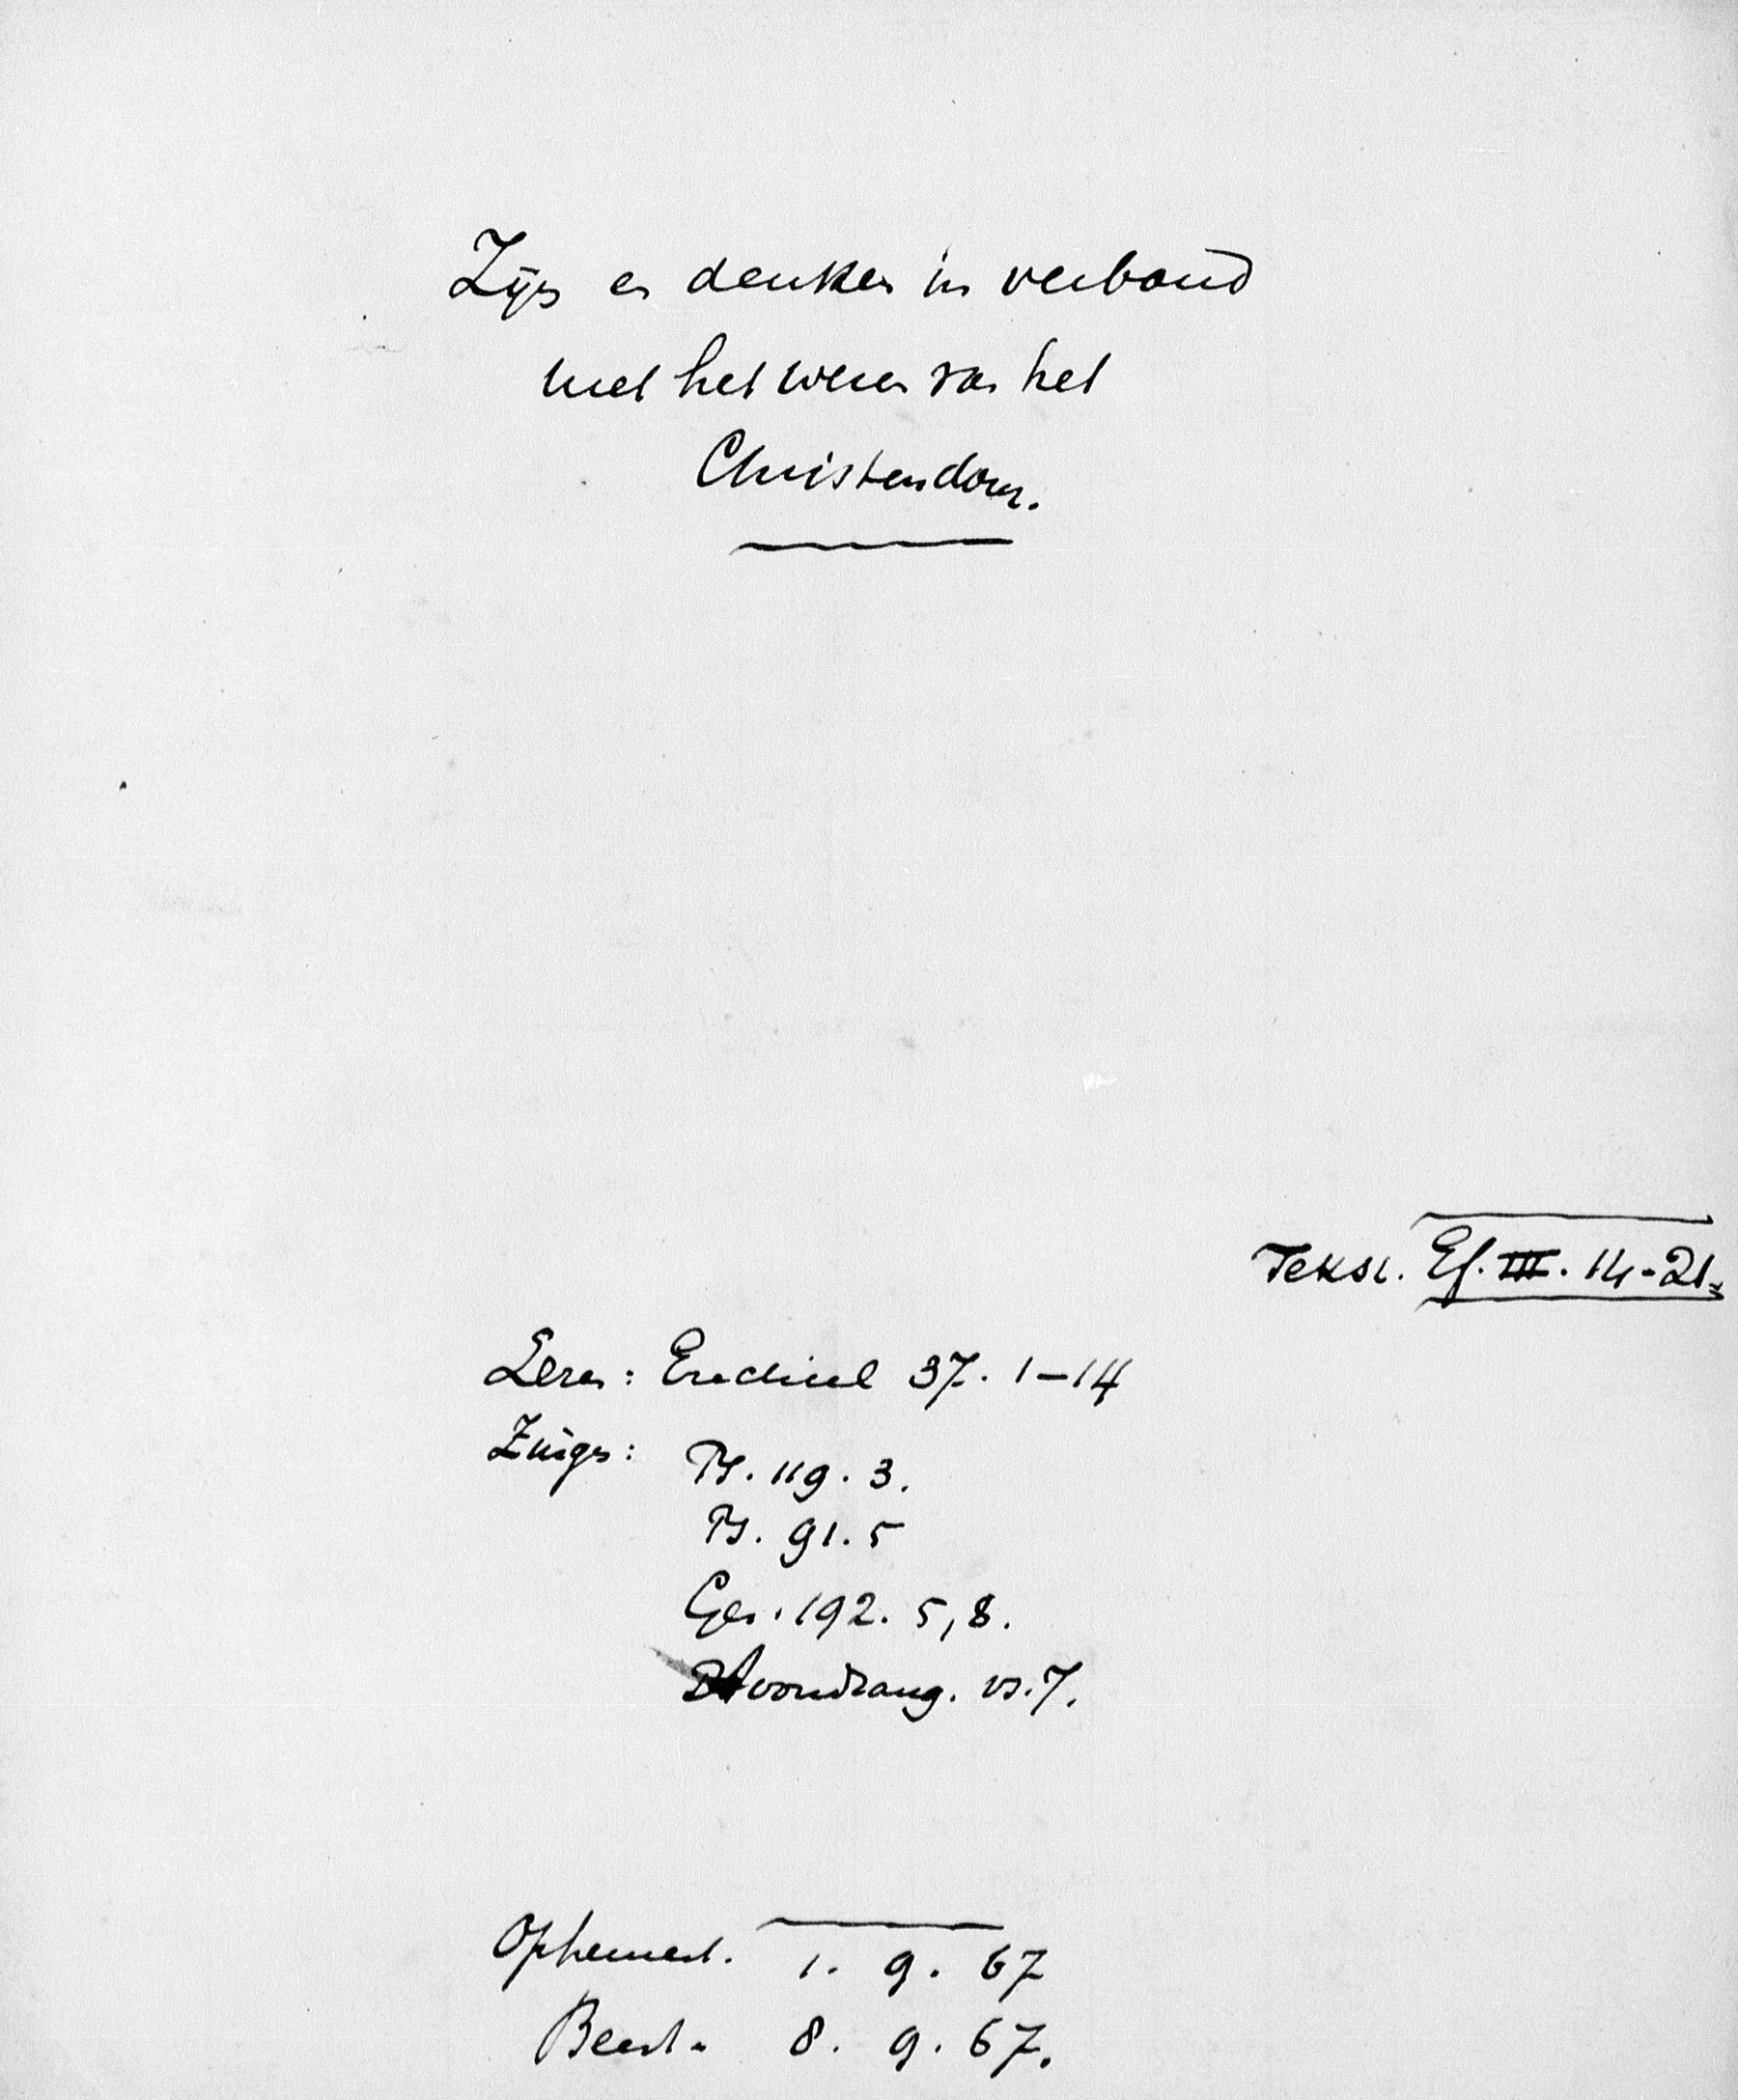 Zijn en denken in verband
met het wezen van het
Christendom.
Tekst. Ef. III. 14-21.
Lezen: Ezechiel 37. 1-14
Zingen:
Ps. 119. 3.
Ps. 91. 5
Gez. 192. 5, 8.
Avondzang. vs. 7.
Ophemert. 1. 9. 67
Beest. 8. 9. 67.